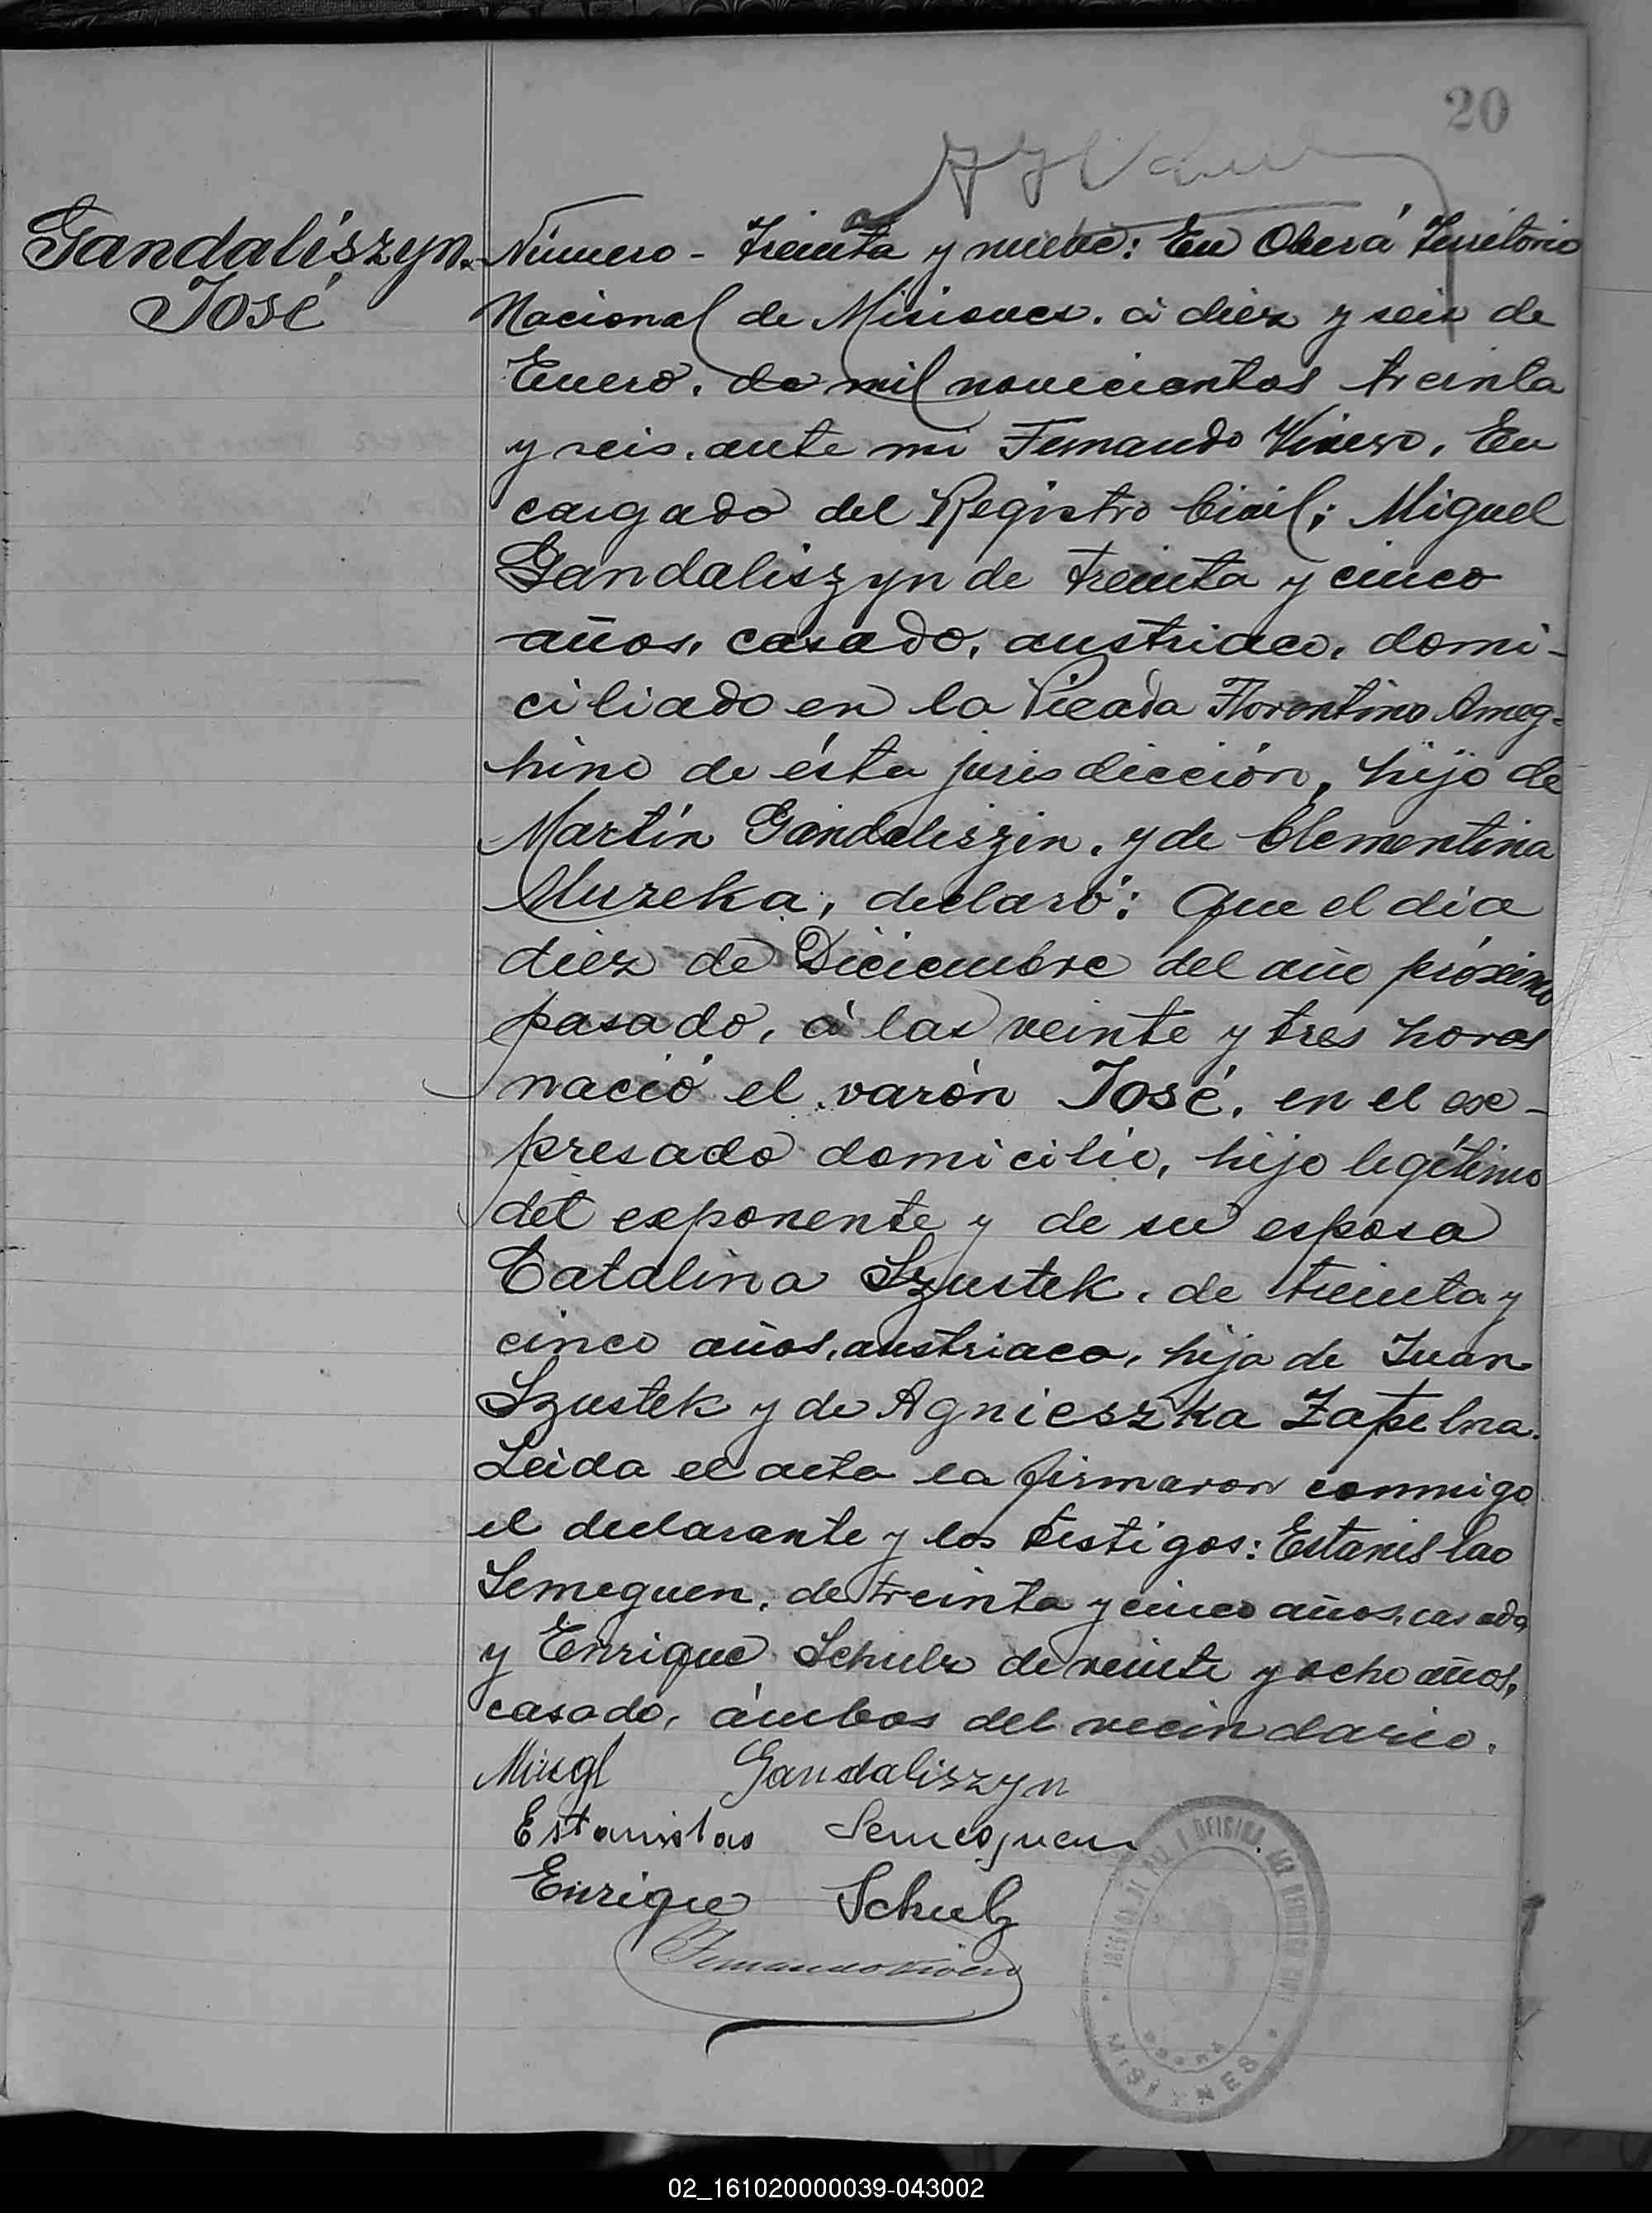 20
Gandaliszyn.
José
Número - Treinta y nueve: En Oberá Territorio
Nacional de Misiones. á diez y seis de
Enero. de mil novecientos treinta
y seis. ante mi Fernando Vivero. En
cargado del Registro Civil; Miguel
Gandaliszyn de treinta y cinco
años, casado, austriaco, domi-
ciliado en la Picada Florentino Ameg-
hino de ésta jurisdicción, hijo de
Martín Gandaliszin. y de Clementina
Muzeka, declaró: Que el día
diez de Diciembre del año próximo
pasado, á las veinte y tres horas
nació el varón José. en el ex-
presado domicilio, hijo legítimo
del exponente y de su esposa
Catalina Szustek. de treinta y
cinco años, austriaca, hija de Juan
Szustek y de Agnieszka Zapelna.
Leida el acta la firmaron conmigo
el declarante y los testigos: Estanislao
Semeguen, de treinta y cinco años, casado,
y Enrique Schulz de veinte y ocho años,
casado, ámbos del vecindario.
Gandaliszyn
Estanislao Semeguen
Enrique Schulz
Fernando Vivero
JUZGADO DE PAZ Y OFICINA DEL REGISTRO CIVIL
OBERA
MISIONES
02_161020000039-043002